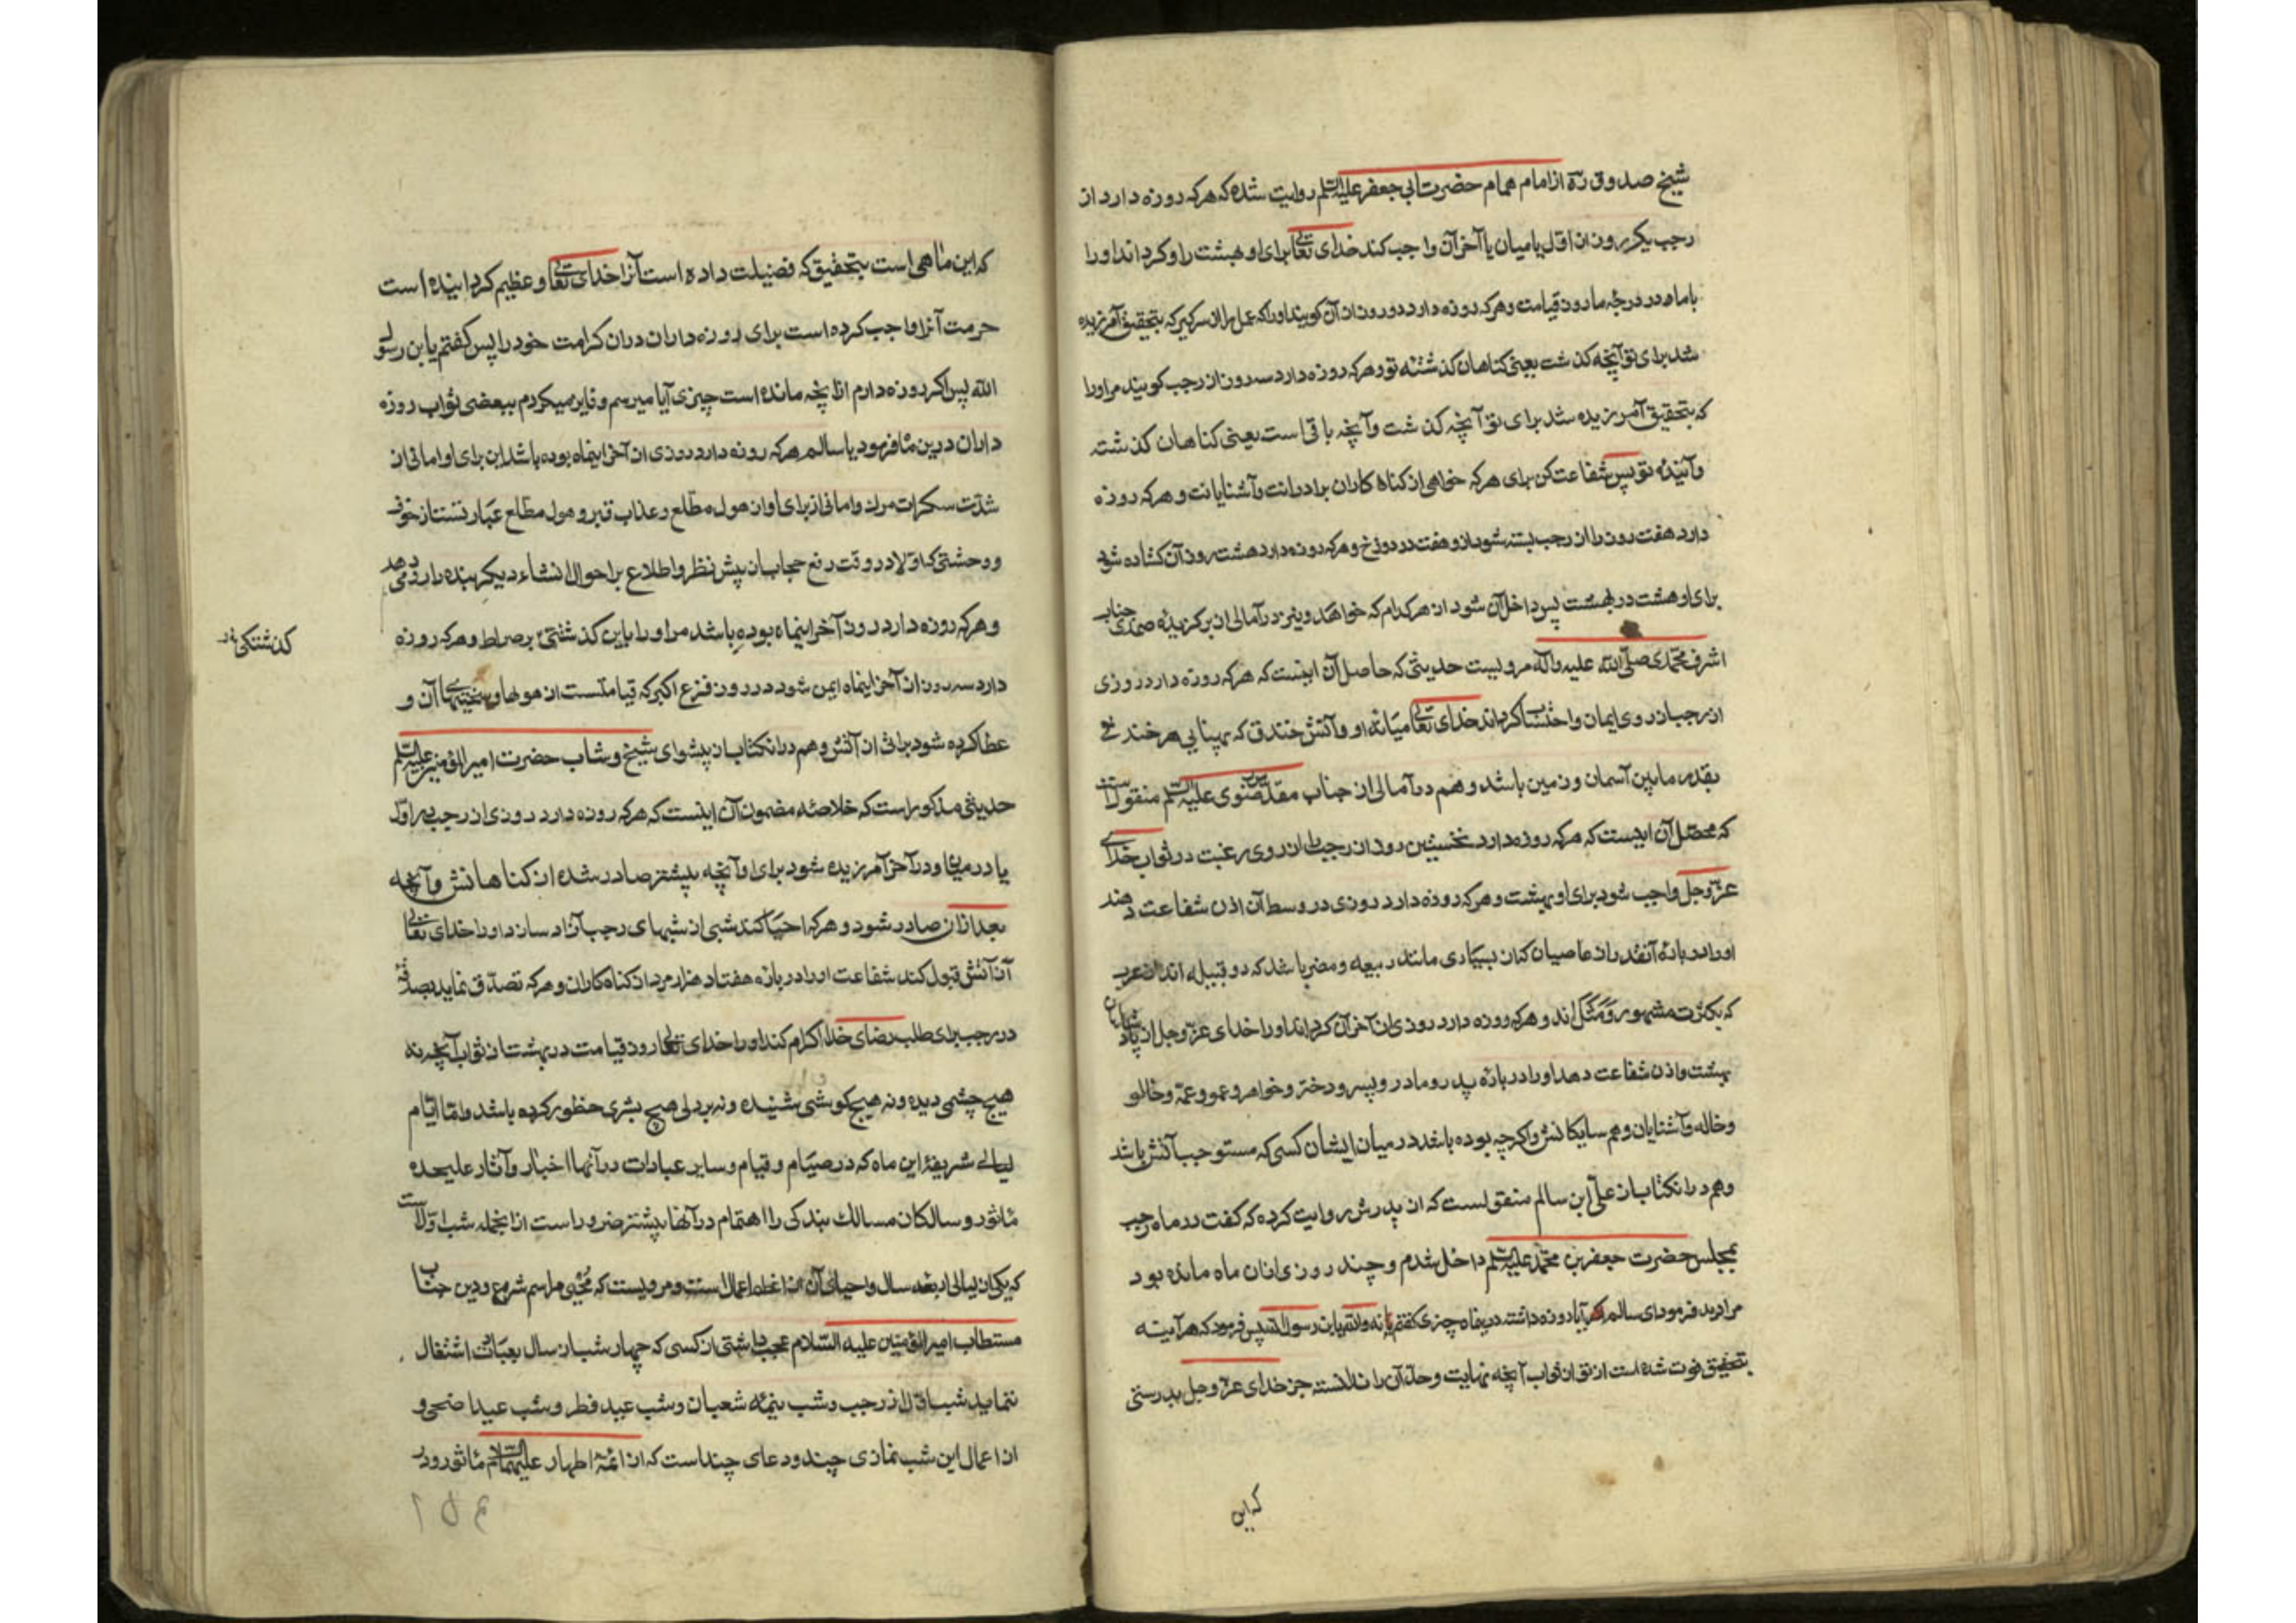 شیخ صدوق ره از امام همام حضرت ابی جعفر علیه السلم روایت شده که هرکه روزه دارد از
رجب یکروز از اول یا میان یا آخر آن واجب کند خدای تعالی برای او بهشت را و کرداند او را
با ما در درجهٔ ما روز قیامت و هرکه روزه دارد دو روز از آن کویند او را که عمل را از سر کیر که بتحقیق آمرزیده
شد برای تو آنچه کذشت یعنی کناهان کذشتهٔ تو و هرکه روزه دارد سه روز از رجب کویند مر او را
که بتحقیق آمرزیده شد برای تو آنچه کذشت و آنچه باقی است یعنی کناهان کذشته
و آیندهٔ تو پس شفاعت کن برای هرکه خواهی از کناه کاران برادرانت و آشنایانت و هرکه روزه
دارد هفت روز را از رجب بسته شود از و هفت در دوزخ و هرکه روزه دارد هشت روز آن کشاده شود
برای او هشت در بهشت پس داخل آن شود از هر کدام که خواهد و نیز در آمالی از برکزیدهٔ صمدی جناب
اشرف محمدی صلی الله علیه و آله مرویست حدیثی که حاصل آن اینست که هرکه روزه دارد روزی
از رجب از روی ایمان و احتساب کرداند خدای تعالی میانهٔ او و آتش خندق که پهنایی هر خندقی
بقدر مابین آسمان و زمین باشد و هم در آمالی از جناب مقدس رضوی علیه السلم منقولست
که محصل آن اینست که هرکه روزه دارد نخستین روز از رجب را از روی رغبت در ثواب خدای
عز و جل واجب شود برای او بهشت و هرکه روزه دارد روزی در وسط آن اذن شفاعت دهند
او را در بارهٔ آنقدر از عاصیان کنان بسیاری مانند ربیعه و مضر باشد که دو قبیله اند از عرب
که بکثرت مشهور و مثل اند و هرکه روزه دارد روزی از آخر آن کرداند او را خدای عز و جل از پادشاهان
بهشت و اذن شفاعت دهد او را در بارهٔ پدر و مادر و پسر و دختر و خواهر و عمو و عمه و خالو
و خاله و آشنایان و همسایکانش و اکرچه بوده باشد در میان ایشان کسی که مستوجب آتش باشد
و هم در انکتاب از علی ابن سالم منقولست که از پدرش روایت کرده که کفت در ماه رجب
بمجلس حضرت جعفر بن محمد علیه السلم داخل شدم و چند روزی از ان ماه مانده بود
مرا دید فرمود ای سالم آیا روزه داشتهٔ درینماه چیزی کفتم نه والله یابن رسول الله پس فرمود که هر آینه
بتحقیق فوت شده است از تو از ثواب آنچه نهایت و حد آن را ندانسته جز خدای عز و جل بدرستی
که این
که این ماهی است بتحقیق که فضیلت داده است آنرا خدای تعالی و عظیم کردانیده است
حرمت آنرا واجب کرده است برای روزه داران در ان کرامت خود را پس کفتم یابن رسول
الله پس اکر روزه دارم از انچه مانده است چیزی آیا میرسم و فایز میکردم ببعضی ثواب روزه
داران درین ماه فرمود یا سالم هرکه روزه دارد روزی از آخر اینماه بوده باشد این برای او امانی از
شدت سکرات مرک و امانی از برای او از هول مطلع و عذاب قبر و هول مطلع عبارتست از خوف
و وحشتی که اولا در وقت رفع حجاب از پیش نظر و اطلاع بر احوال انشاء دیکر بنده را رو می دهد
و هرکه روزه دارد دو روز آخر اینماه بوده باشد مر او را باین کذشتنی بر صراط و هرکه روزه
کذشتکی
دارد سه روز از آخر اینماه ایمن شود در روز فزع اکبر که قیامتست از هولها و سختیهای آن و
عطا کرده شود براتی از آتش و هم در انکتاب از پیشوای شیخ و شاب حضرت امیر المؤمنین علیه السلم
حدیثی مذکور است که خلاصهٔ مضمون آن اینست که هرکه روزه دارد روزی از رجب در اول
یا در میان و در آخر آمرزیده شود برای او آنچه پیشتر صادر شده از کناهانش و آنچه
بعد از ان صادر شود و هرکه احیا کند شبی از شبهای رجب آزاد سازد او را خدای تعالی
از آتش قبول کند شفاعت او را در بارهٔ هفتاد هزار مرد از کناه کاران و هرکه تصدق نماید بصدقهٔ
در رجب برای طلب رضای خدا اکرام کند او را خدای تعالی روز قیامت در بهشت از ثواب آنچه نه
هیچ چشمی دیده و نه هیچ کوشی شنیده و نه بر دل هیچ بشری خطور کرده باشد و اما ایام
لیالی شریفهٔ این ماه که در صیام و قیام و سایر عبادات در آنها اخبار و آثار علیحده
ماثور و سالکان مسالک بندکی را اهتمام در آنها پیشتر ضرور است از انجمله شب اولست
که یکی از لیالی اربعه سال و احیای آن از اعظم اعمال است و مرویست که محیی مراسم شرع و دین جناب
مستطاب امیر المؤمنین علیه السلام عجب داشتی از کسی که چهار شب از سال بعبادت اشتغال
ننماید شب اول از رجب و شب نیمهٔ شعبان و شب عید فطر و شب عید اضحی و
از اعمال این شب نمازی چند و دعای چند است که از ائمهٔ اطهار علیهم السلام ماثور و در